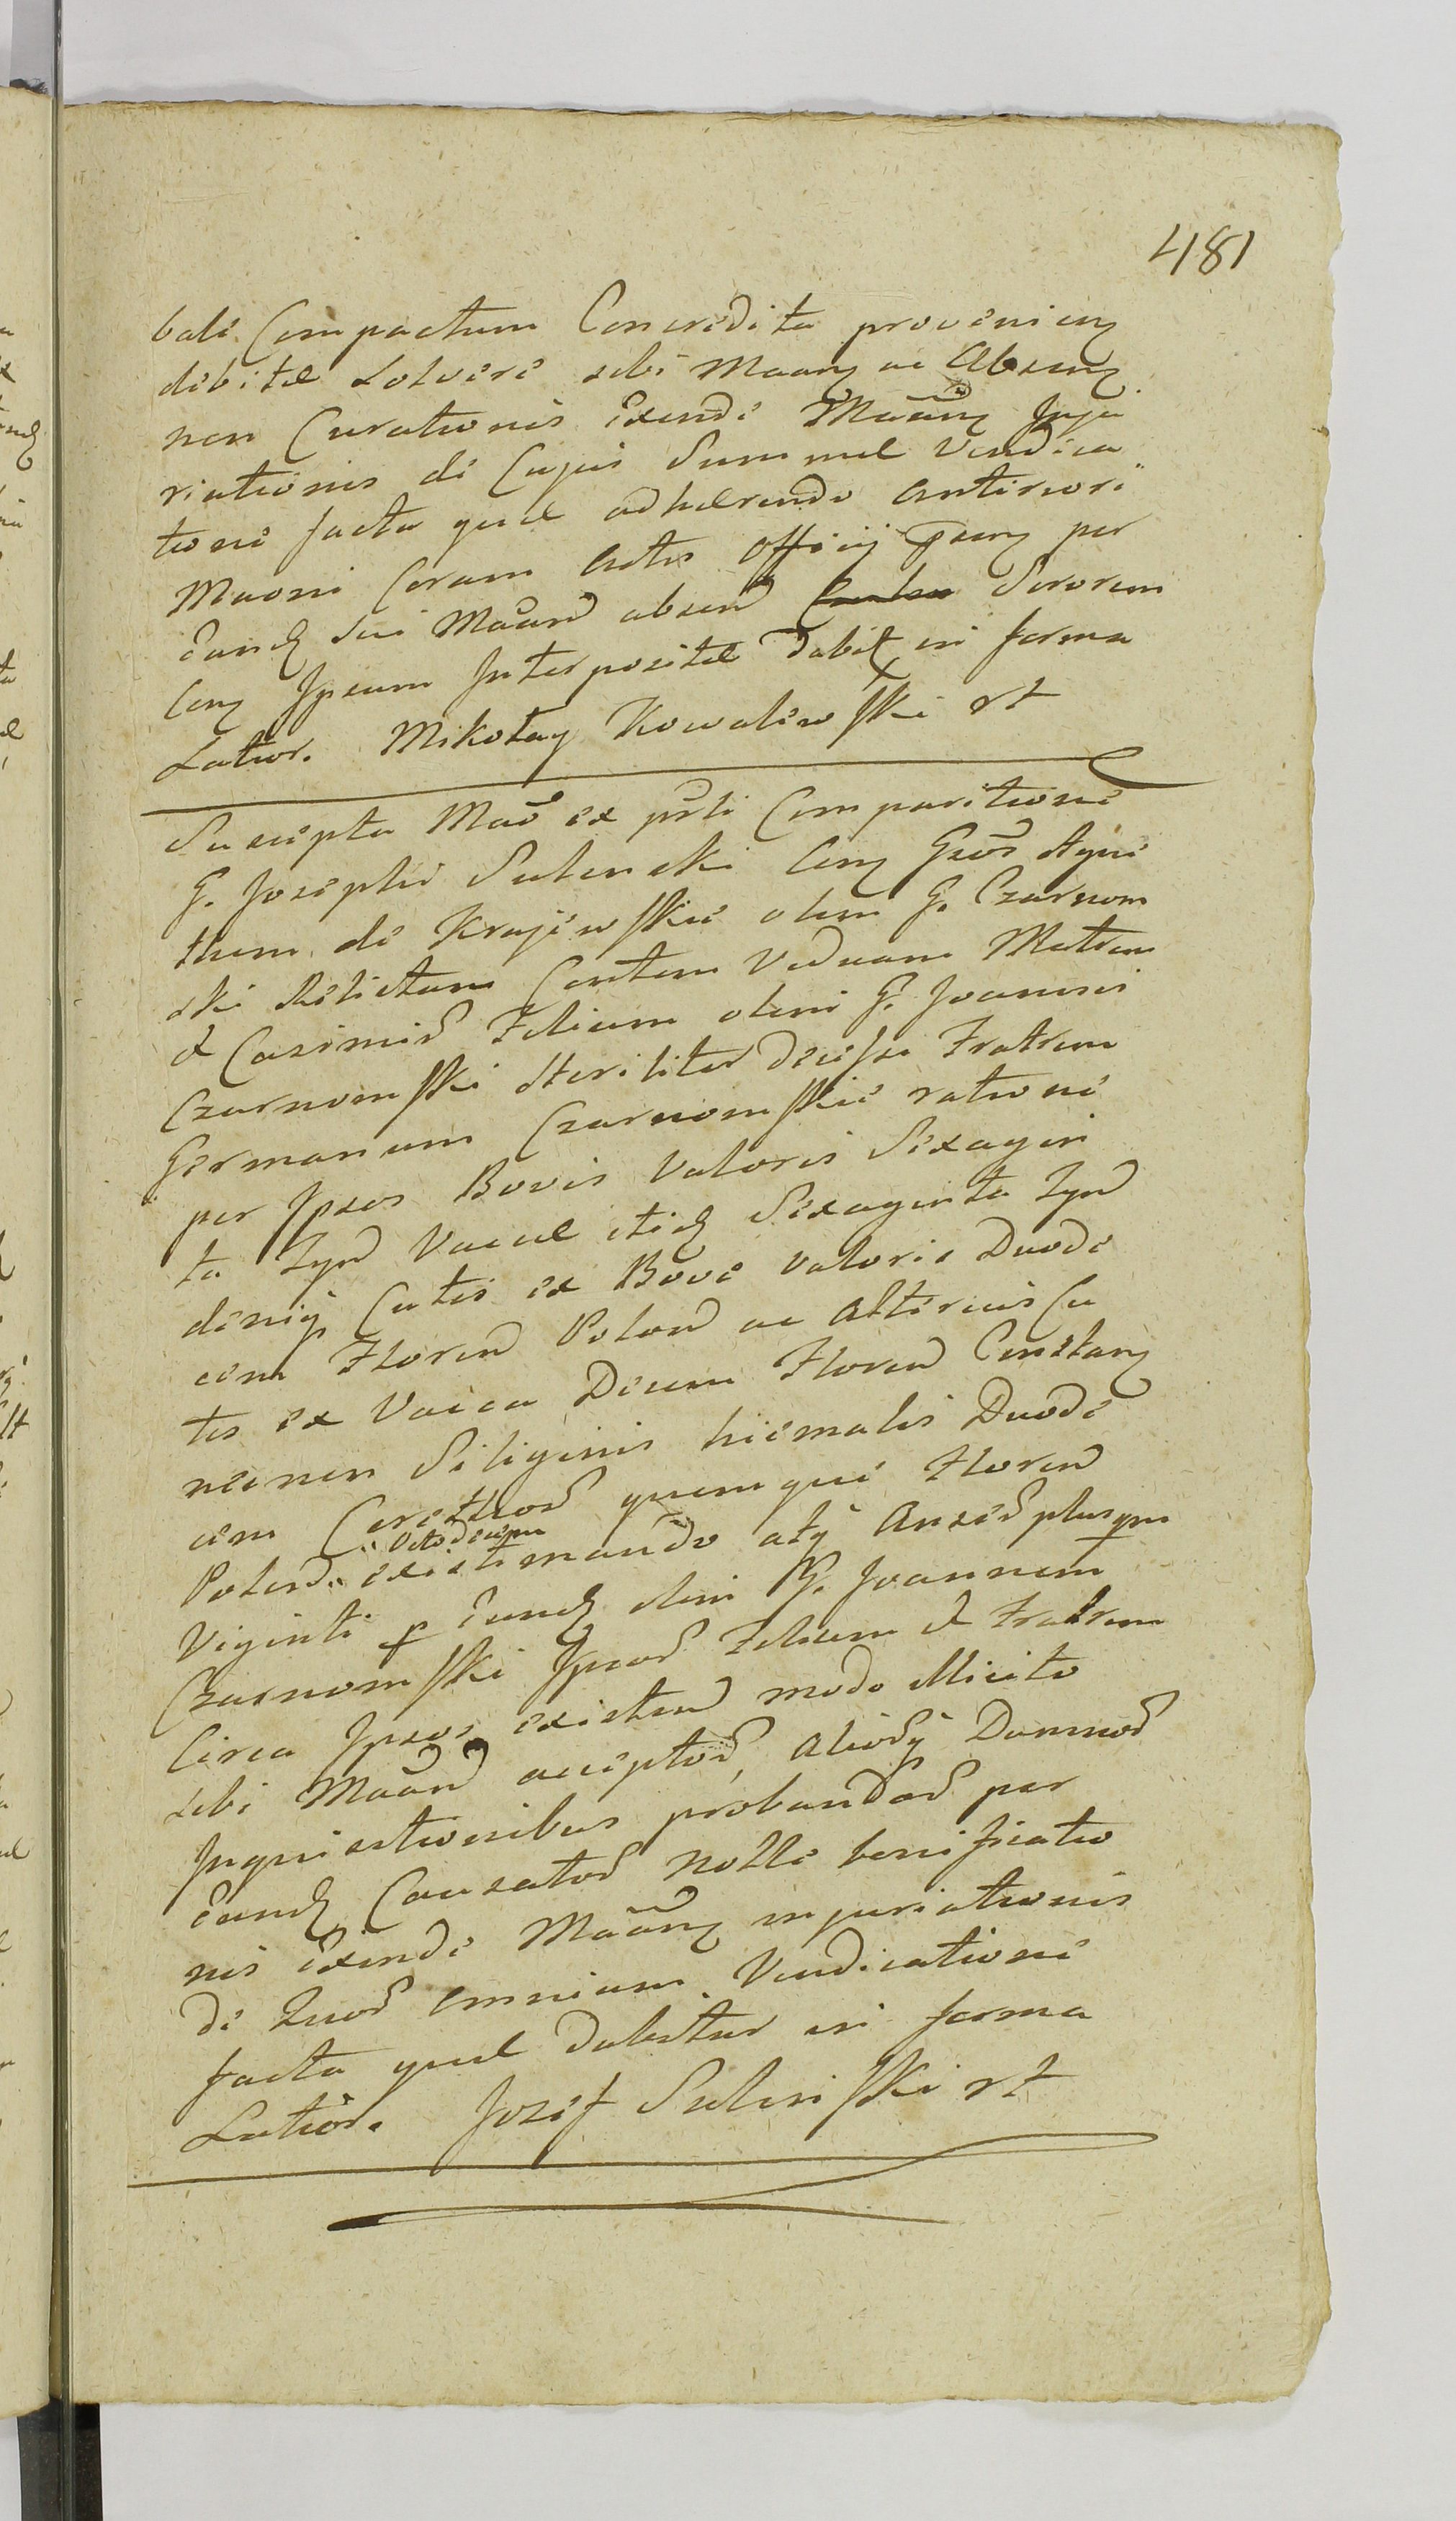 481
bali Compactum Concredita provenien
debitae solvere sibi Maan ac Absen
non Curationis Exinde Maan Inju
riationis de Cujus Summae Vendica
tione facta quae adhaerendo anteriori
Maoni Coram Actis Officij Praesen per
Eund sui Maand absend Sororem
Con Ipsum Interpositae dabit in forma
Latior. Mikołay Kowalewski rt
Suscepta Mao ex parti Comparitione
G. Josephi Sulenski Con Gsos Agne
them de Krajewskie olim G. Czarnom
ski Relictam Contem Viduam Matrem
et Casimir Filium olim G. Joannis
Czarnomski steriliter decessi Fratrem
Germanum Czarnomskie ratione
per Ipsos Bovis Valoris Sexagin
ta Tynf Vaccae itid Sexaginta Tynf
deniq Cutis ex Bove valoris Duode
cem Floren Polon ac Alterius Cu
tis ex Vacca Decem Floren Constan
necnon Siliginis hiemalis Duode
cim Corethor quemque Floren
Polon Octodecim existimando atq Anser plusqm
Viginti p Eund olim G. Joannem
Czarnomski Ipsor Filium et Fratrem
Circa Ipsos existen modo illicito
sibi Maand acceptor, Aliorq Damnor
Inquisitionibus probandor per
Eund Causator nolle bonificatio
nis Exinde Maan injuriationis
de Quor omnium Vendicatione
facta quae dabitur in forma
Latior. Jozef Sulenski rt